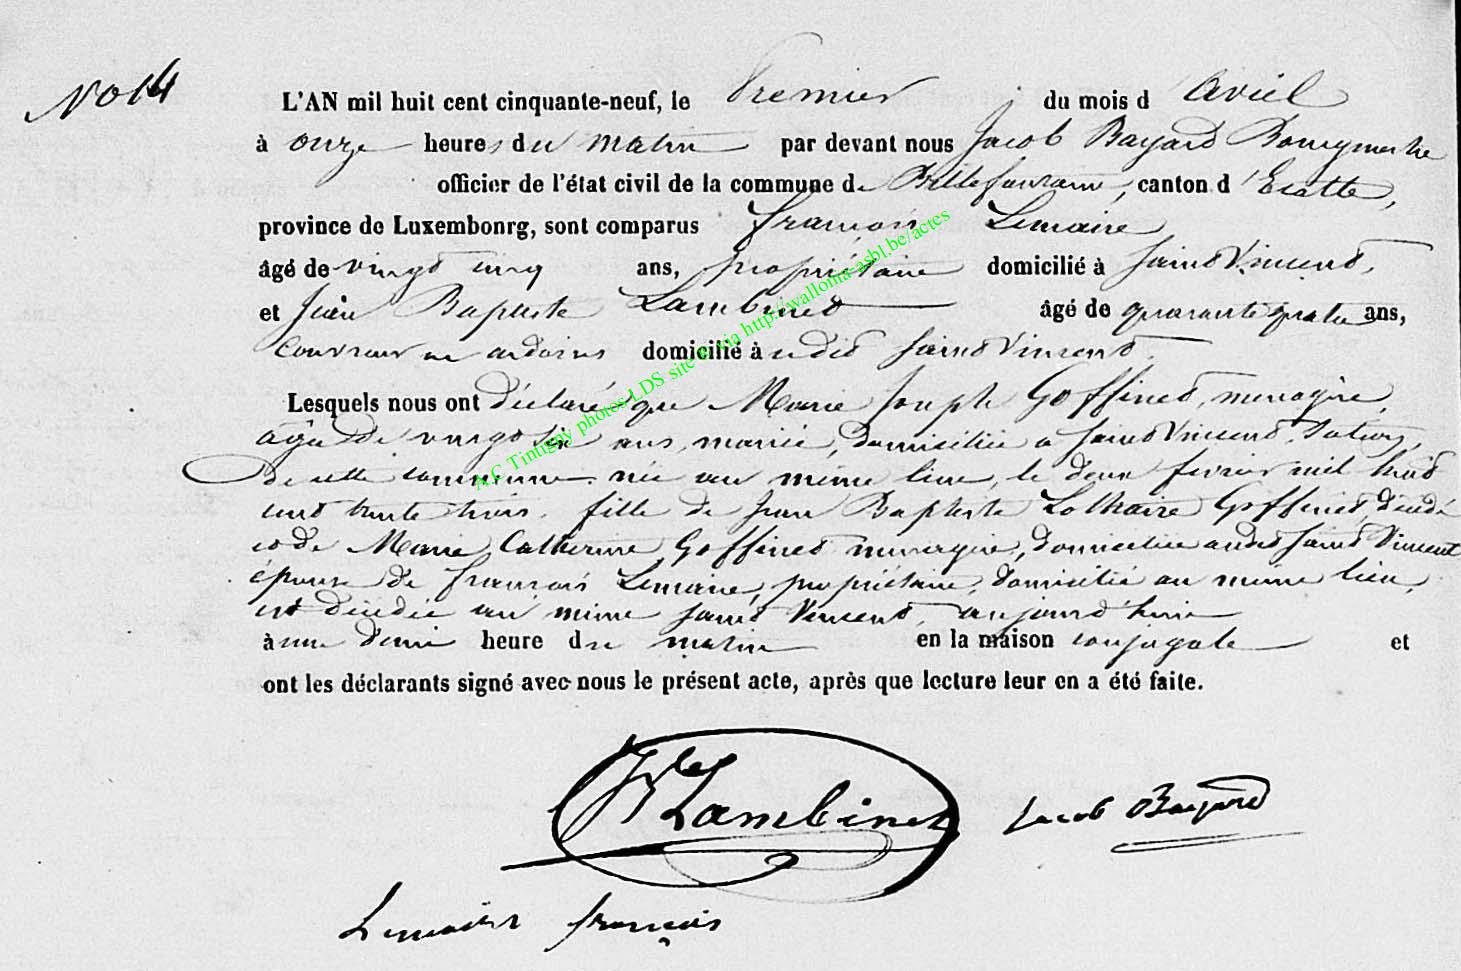 No 14
L'AN mil huit cent cinquante-neuf, le Premier du mois d'Avril
à onze heures du matin par devant nous Jacob Bayard Bourgmestre
officier de l'état civil de la commune de Bellefontaine, canton d'Etalle,
province de Luxembonrg, sont comparus François Lemaire
âgé de vingt cinq ans, propriétaire domicilié à Saint Vincent,
et Jean Baptiste Lambinet âgé de quarante quatre ans,
couvreur en ardoises domicilié à udit Saint Vincent.
Lesquels nous ont déclaré que Marie Joseph Goffinet, menagère,
âgée de vingt six ans, mariée, domiciliée a Saint Vincent,
de cette commune, née au même lieu, le deux fevrier mil huit
cent trente trois, fille de Jean Baptiste Lothaire Goffinet, décédé
et de Marie Catherine Goffinet menagère, domiciliée audit Saint Vincent
épouse de François Lemaire, propriétaire, domicilié au même lieu,
est décédée au même Saint Vincent, aujourd'hui
à une demi heure du matin en la maison conjugale et
ont les déclarants signé avec nous le présent acte, après que lecture leur en a été faite.
Lambinet
Jacob Bayard
Lemaire françois
A.C Tintigny photos LDS site via http://wallonia-asbl.be/actes